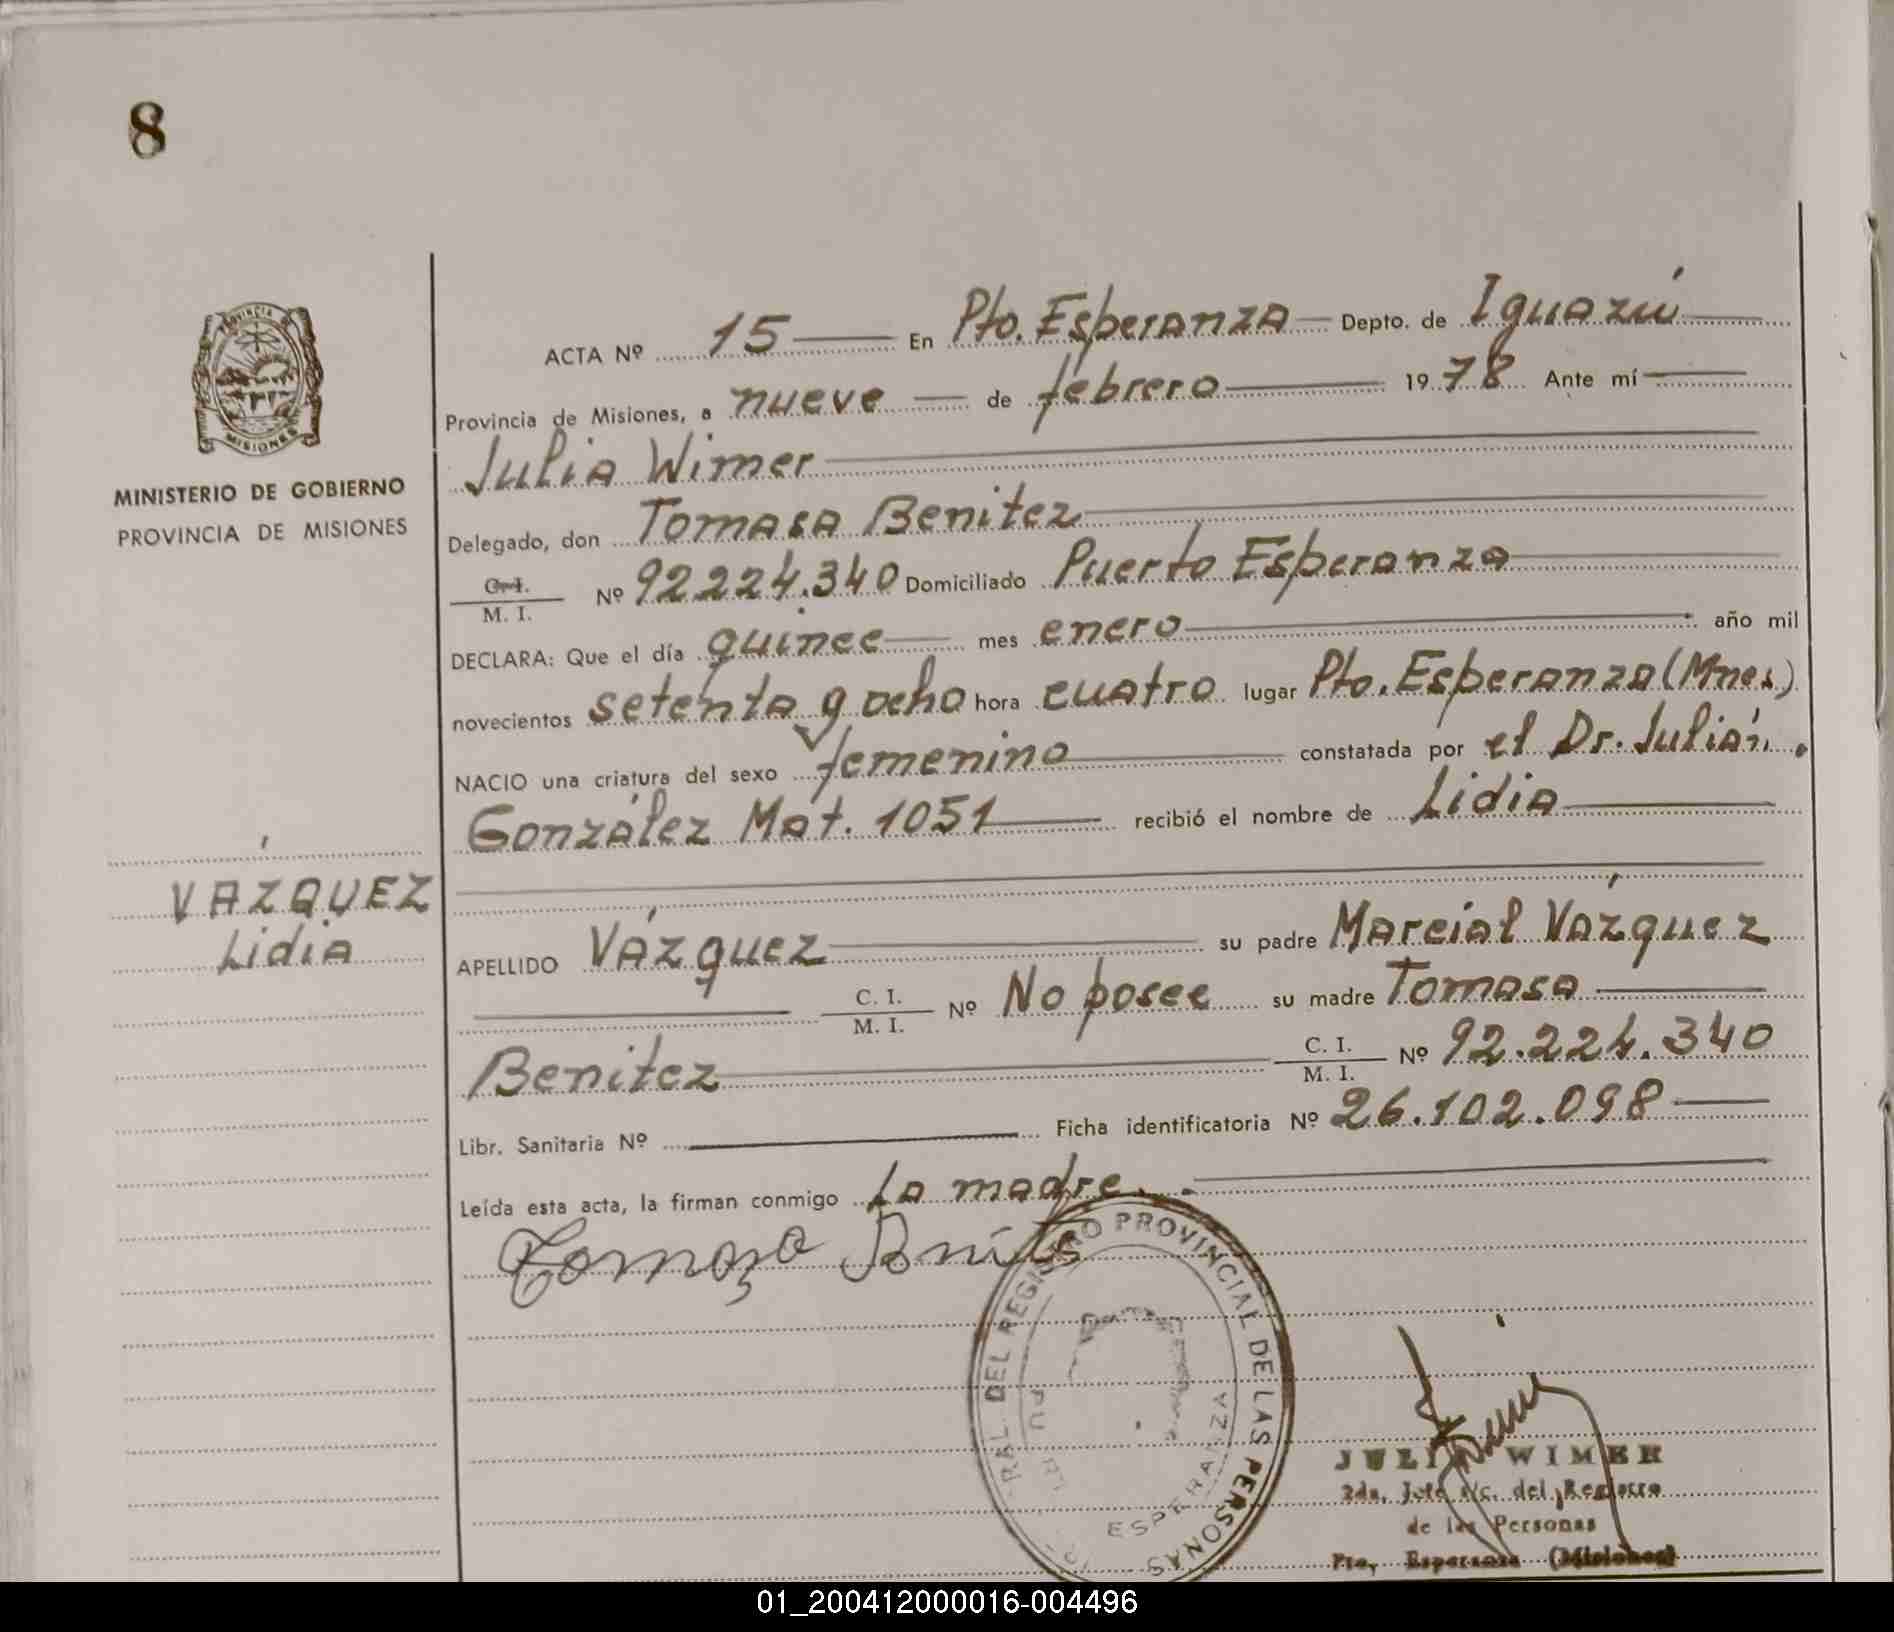 8
PROVINCIA DE
MISIONES
MINISTERIO DE GOBIERNO
PROVINCIA DE MISIONES
VÁZQUEZ
Lidia
ACTA Nº 15 En Pto. Esperanza Depto. de Iguazú
Provincia de Misiones, a nueve de febrero 1978 Ante mí
Julia Wimer
Delegado, don Tomasa Benitez
C. I. / M. I. Nº 92.224.340 Domiciliado Puerto Esperanza
DECLARA: Que el día quince mes enero año mil
novecientos setenta y ocho hora cuatro lugar Pto. Esperanza (Mnes.)
NACIO una criatura del sexo femenino constatada por el Dr. Julián
González Mat. 1051 recibió el nombre de Lidia
APELLIDO Vázquez su padre Marcial Vázquez
C. I. / M. I. Nº No posee su madre Tomasa
Benitez C. I. / M. I. Nº 92.224.340
Libr. Sanitaria Nº Ficha identificatoria Nº 26.102.098
Leída esta acta, la firman conmigo La madre.
Tomasa
DEL REGISTRO PROVINCIAL DE LAS PERSONAS
ESPERANZA
JULIA WIMER
2da. Jefe a/c. del Registro
de las Personas
Pto. Esperanza (Misiones)
01_200412000016-004496